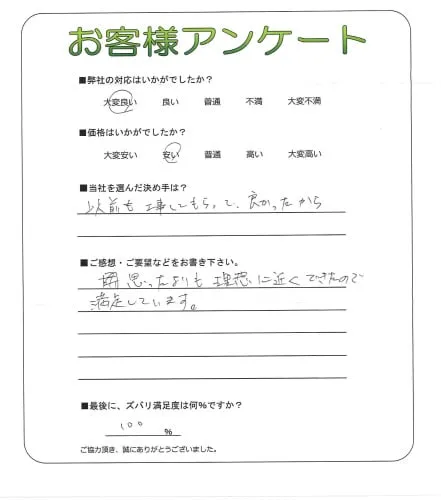 お客様アンケート
■弊社の対応はいかがでしたか？
大変良い 良い 普通 不満 大変不満
■価格はいかがでしたか？
大変安い 安い 普通 高い 大変高い
■当社を選んだ決め手は？
以前も工事してもらって、良かったから
■ご感想・ご要望などをお書き下さい。
思ったよりも理想に近くできたので
満足しています。
■最後に、ズバリ満足度は何％ですか？
100 ％
ご協力頂き、誠にありがとうございました。